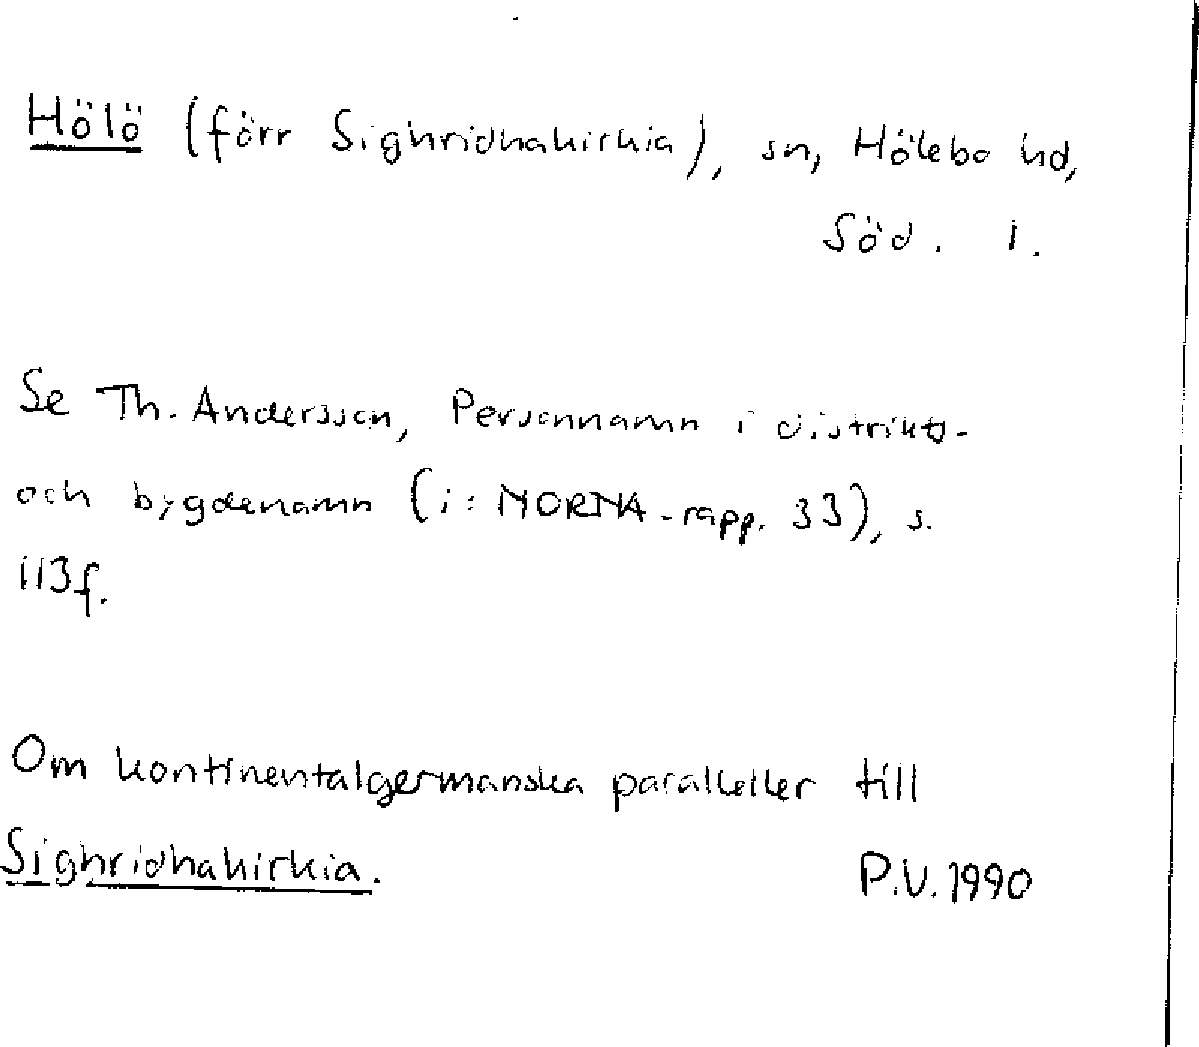 Hölö (förr Sighridhakirkia), sn, Hölebo hd,
Söd. l.
Se Th. Andersson, Personnamn i distrikts-
och bygdenamn (i: NORNA-rapp. 33), s.
113f.
Om kontinentalgermanska paralleller till
Sighridhakirkia. P.V. 1990